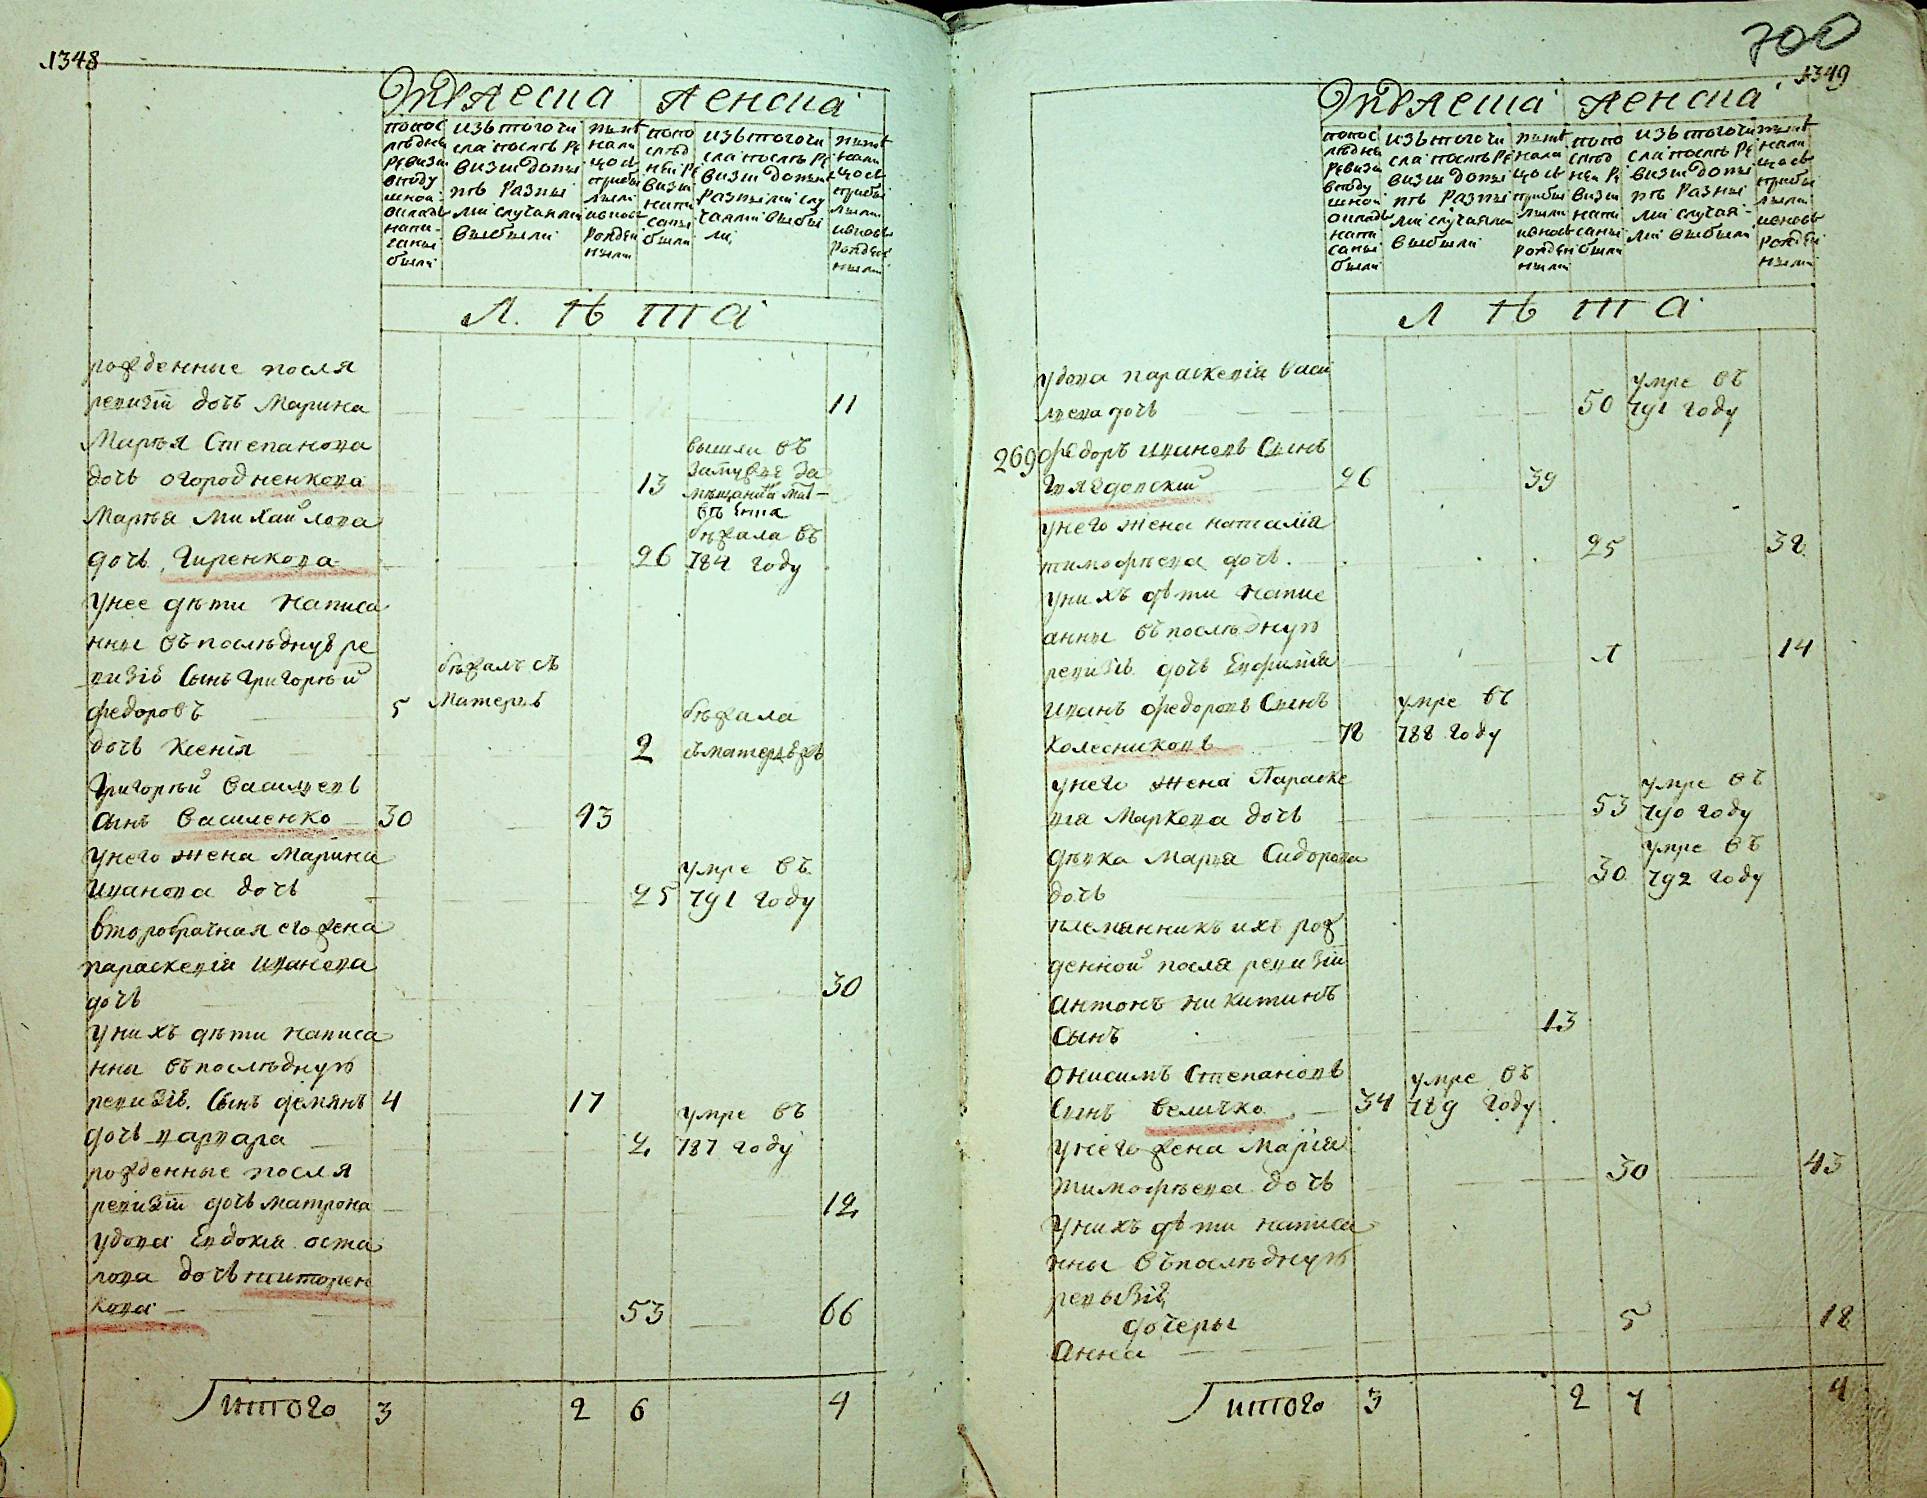 1348
Мужеска Женска
попос
лѣдне
ревизи
вподу
шной
окладъ
напи-
саны
были
изъ того чи
сла послѣ ре
визи допы
нѣ разны
ми случаями
выбыли
нынѣ
нали
цо съ
прибы
лыми
ивновь
рожден
ными
попо
слѣд
ней ре
визи
напи
саны
были
изъ того чи
сла послѣ ре
визи допынѣ
разными слу
чаями выбы
ли
нынѣ
нали
цо съ
прибы
лыми
ивновь
рожден
ными
Л ѣ т а
рожденные посля
ревизіи дочь Марина 11
Марья Степанова вышли въ
дочь Огородненкова 13 замужне за
мещанина
Марья Михайлова
дочь Гиренкова 26 бѣжала въ 784 году
унее дѣти написа
нны въпослѣднуе ре
визіе Сынъ Григорѣй бѣжалъ съ
Федоровъ 5 матерью
дочь Ксенія 2 бѣжала сматерью
Григорѣй Васильевъ
сынъ Василенко 30 43
унего жена Марина
Иванова дочь 25 умре въ 791 году
второбрачная его жена
параскевія Иванова
дочь 30
унихъ дѣти написа
нны въпослѣдную
ревизіе. Сынъ демянъ 4 17
дочь варвара 2 умре въ 787 году
рожденные посля
ревизіи дочь матрона 12
удова Евдокія оста
пова дочь
кова 53 66
Итого 3 2 6 4
700
1349
Мужеска Женска
попос
лѣдне
ревизи
вподу
шной
окладъ
напи
саны
были
изъ того чи
сла послѣ ре
визи допы
нѣ разны
ми случаями
выбыли
нынѣ
нали
цо съ
прибы
лыми
ивновь
рожден
ными
попо
слѣд
ней ре
визи
напи
саны
были
изъ того чи
сла послѣ ре
визи допы
нѣ разны
ми случая-
ми выбыли
нынѣ
нали
цо съ
прибы
лыми
ивновь
рожден
ными
Л ѣ т а
удова параскевія Васи
лиева дочь 50 умре въ 791 году
269 Федоръ Ивановъ Сынъ
Гвяздовскій 26 39
унего жена наталія
тимофѣева дочь 25 38
унихъ дѣти напис
анны въпослѣдную
ревизіе дочь Евфимія 1 14
Иванъ Федоровъ Сынъ
Колесниковъ 78 умре въ 788 году
унего жена Параске
вія Маркова дочь 53 умре въ 790 году
дѣвка Марья Сидорова
дочь 30 умре въ 792 году
племянникъ ихъ рож
денной посля ревизіи
Антонъ Никитинъ
Сынъ 13
Онисимъ Степановъ
Сынъ Величко 34 умре въ 789 году
унего жена Марія
тимофѣева дочь 30 43
унихъ дѣти написа
нны въпослѣдную
ревызіе
дочеры
Анна 5 18
Итого 3 2 7 4